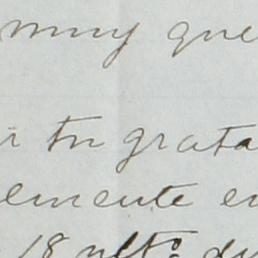 muy que
tu grata
emente en
18 ulto. du